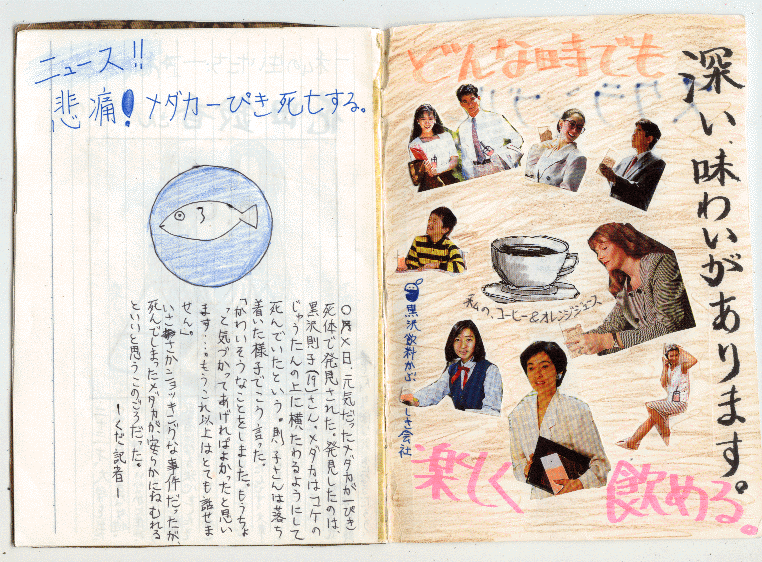 ニュース!!
悲痛!メダカ一ぴき死亡する。
〇月×日、元気だったメダカが一ぴき
死体で発見された。発見したのは、
黒沢則子(19)さん、メダカはコケの
じゅうたんの上に横たわるようにして
死んでいたという。則子さんは落ち
着いた様子でこう言った。
「かわいそうなことをしました。もうちょ
って気づかってあげればよかったと思い
ます…。もうこれ以上はとても話せま
せん。」
いささかショッキングな事件だったが、
死んでしまったメダカが安らかにねむれる
といいと思うこのごろだった。
ーくだ記者ー
どんな時でも
深い味わいがあります。
私の、コーヒー&オレンジジュース
黒沢飲料かぶしき会社
楽しく 飲める。